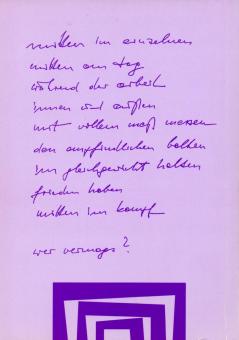 mitten im einzelnen
mitten am tag
während der arbeit
innen und außen
mit vollem maß messen
den empfindlichen balken
im gleichgewicht halten
frieden haben
mitten im kampf
wer vermags?